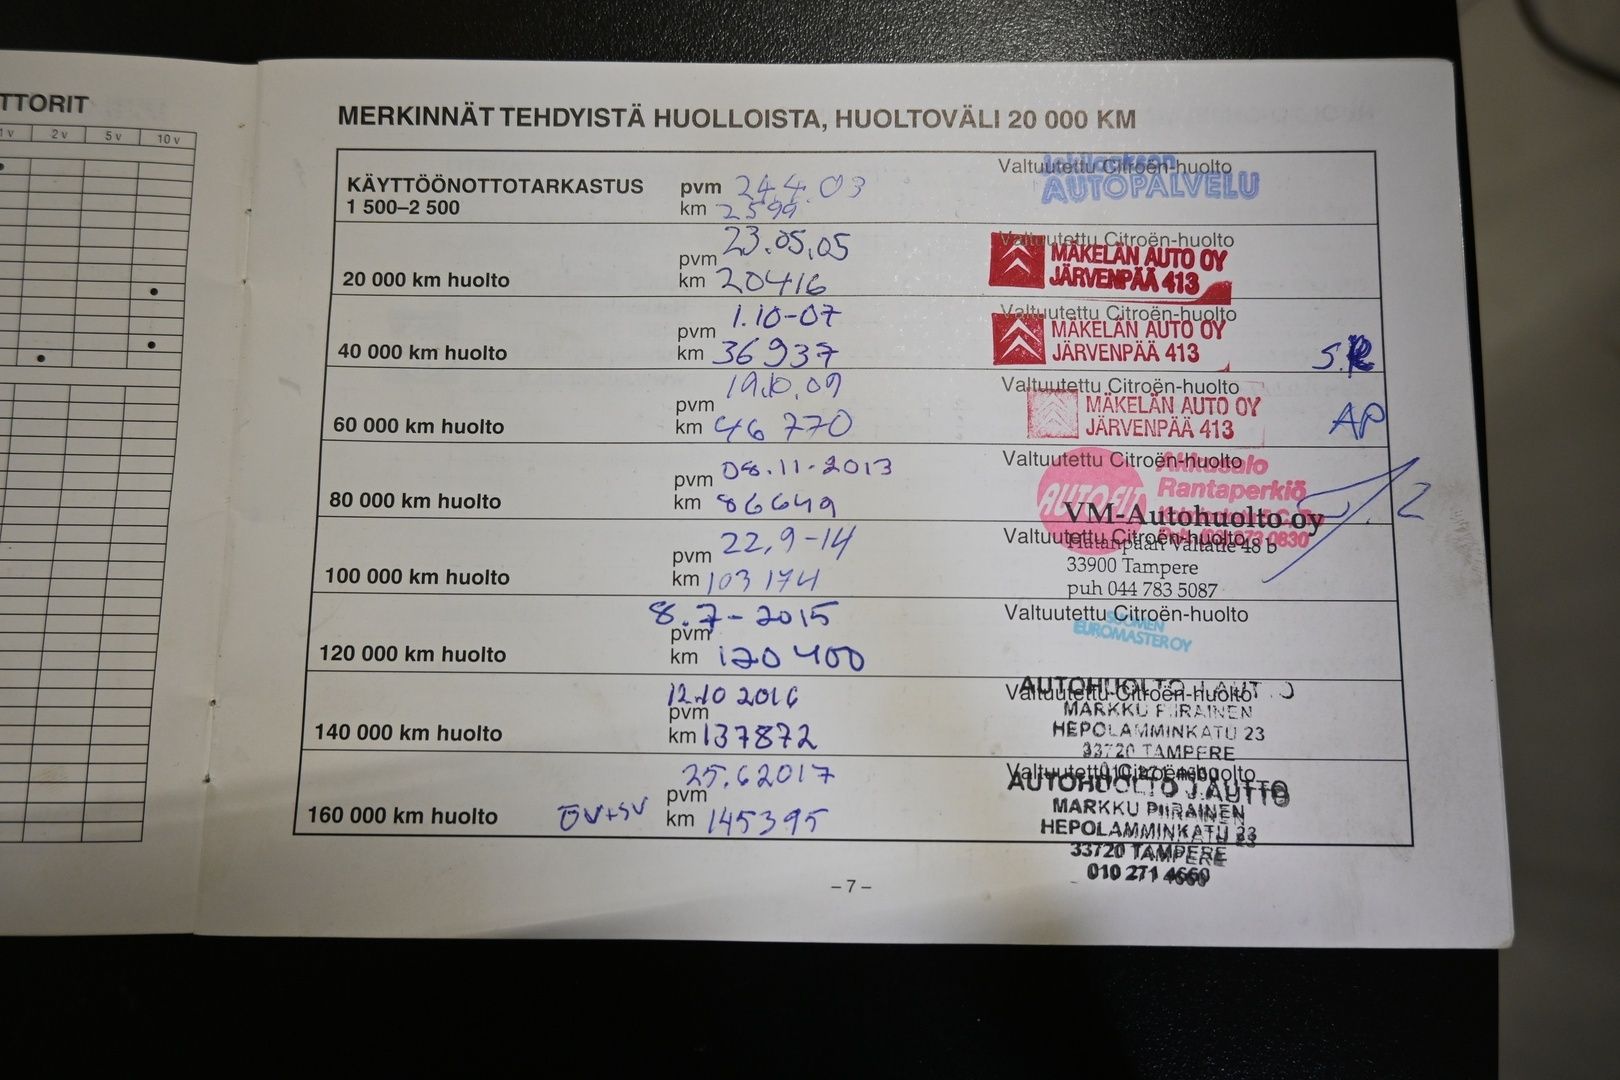 TTORIT
1 v 2 v 5 v 10 v
MERKINNÄT TEHDYISTÄ HUOLLOISTA, HUOLTOVÄLI 20 000 KM
KÄYTTÖÖNOTTOTARKASTUS
1 500–2 500
pvm 24.4.03
km 2599
Valtuutettu Citroën-huolto
AUTOPALVELU
20 000 km huolto
pvm 23.05.05
km 20416
Valtuutettu Citroën-huolto
MÄKELÄN AUTO OY
JÄRVENPÄÄ 413
40 000 km huolto
pvm 1.10-07
km 36937
Valtuutettu Citroën-huolto
MÄKELÄN AUTO OY
JÄRVENPÄÄ 413
60 000 km huolto
pvm 19.10.09
km 46 770
Valtuutettu Citroën-huolto
MÄKELÄN AUTO OY
JÄRVENPÄÄ 413
AP
80 000 km huolto
pvm 08.11-2013
km 86649
Valtuutettu Citroën-huolto
AUTOFIT
Akkusalo
Rantaperkiö
VM-Autohuolto oy
100 000 km huolto
pvm 22,9-14
km 103 174
Valtuutettu Citroën-huolto
Hatanpään valtatie 48 b
33900 Tampere
puh 044 783 5087
120 000 km huolto
pvm 8.7-2015
km 120 400
Valtuutettu Citroën-huolto
SUOMEN
EUROMASTER OY
140 000 km huolto
pvm 12.10 2016
km 137872
Valtuutettu Citroën-huolto
AUTOHUOLTO J.AUTTO
MARKKU PIIRAINEN
HEPOLAMMINKATU 23
33720 TAMPERE
160 000 km huolto
ÖV+SV
pvm 25.6.2017
km 145395
Valtuutettu Citroën-huolto
AUTOHUOLTO J.AUTTO
MARKKU PIIRAINEN
HEPOLAMMINKATU 23
33720 TAMPERE
010 271 4660
– 7 –